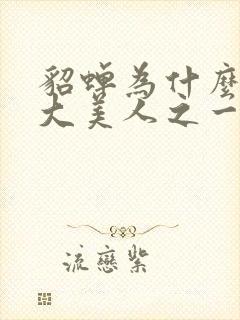 貂蟬為什麼
大美人之一
流戀紫